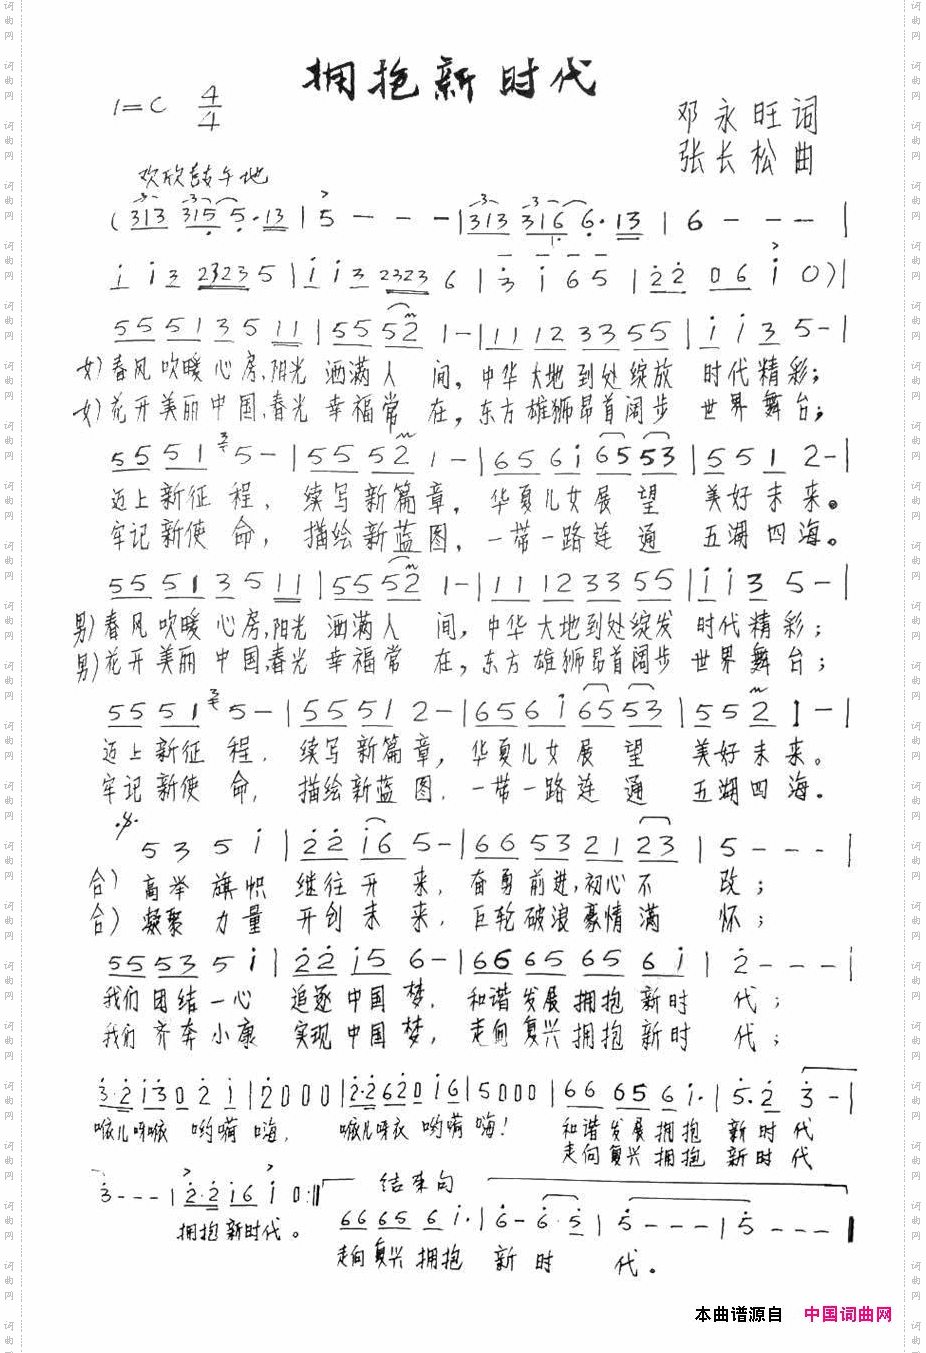 拥抱新时代
1=C 4/4
邓永旺词
张长松曲
欢欣鼓午地
(313 315 5·13 | 5 - - - | 313 316 6·13 | 6 - - - |
i i 3 2323 5 | i i 3 2323 6 | 3 i 6 5 | 2 2 0 6 i 0) |
5 5 5 1 3 5 1 1 | 5 5 5 2 1 - | 1 1 1 2 3 3 5 5 | i i 3 5 - |
女)春风吹暖心房,阳光洒满人间,中华大地到处绽放时代精彩;
女)花开美丽中国,春光幸福常在,东方雄狮昂首阔步世界舞台;
5 5 5 1 3 5 - | 5 5 5 2 1 - | 6 5 6 i 6 5 5 3 | 5 5 1 2 - |
迈上新征程,续写新篇章,华夏儿女展望美好未来。
牢记新使命,描绘新蓝图,一带一路连通五湖四海。
5 5 5 1 3 5 1 1 | 5 5 5 2 1 - | 1 1 1 2 3 3 5 5 | i i 3 5 - |
男)春风吹暖心房,阳光洒满人间,中华大地到处绽发时代精彩;
男)花开美丽中国,春光幸福常在,东方雄狮昂首阔步世界舞台;
5 5 5 1 3 5 - | 5 5 5 1 2 - | 6 5 6 i 6 5 5 3 | 5 5 2 1 - |
迈上新征程,续写新篇章,华夏儿女展望美好未来。
牢记新使命,描绘新蓝图,一带一路连通五湖四海。
5 3 5 i | 2 2 i 6 5 - | 6 6 5 3 2 1 2 3 | 5 - - - |
合)高举旗帜继往开来,奋勇前进,初心不改;
合)凝聚力量开创未来,巨轮破浪豪情满怀;
5 5 5 3 5 i | 2 2 i 5 6 - | 6 6 6 5 6 5 6 i | 2 - - - |
我们团结一心追逐中国梦,和谐发展拥抱新时代;
我们齐奔小康实现中国梦,走向复兴拥抱新时代;
3·2 i 3 0 2 i | 2 0 0 0 | 2·2 6 2 0 i 6 | 5 0 0 0 | 6 6 6 5 6 i· | 5·2 3 - |
嗾儿呀嗾哟嗬嗨,嗾儿呀衣哟嗬嗨!和谐发展拥抱新时代
走向复兴拥抱新时代
3 - - - | 2·2 i 6 i 0 :|| 结束句
拥抱新时代。
6 6 6 5 6 i· | 6 - 6·5 | 5 - - - | 5 - - - ||
走向复兴拥抱新时代。
本曲谱源自 中国词曲网